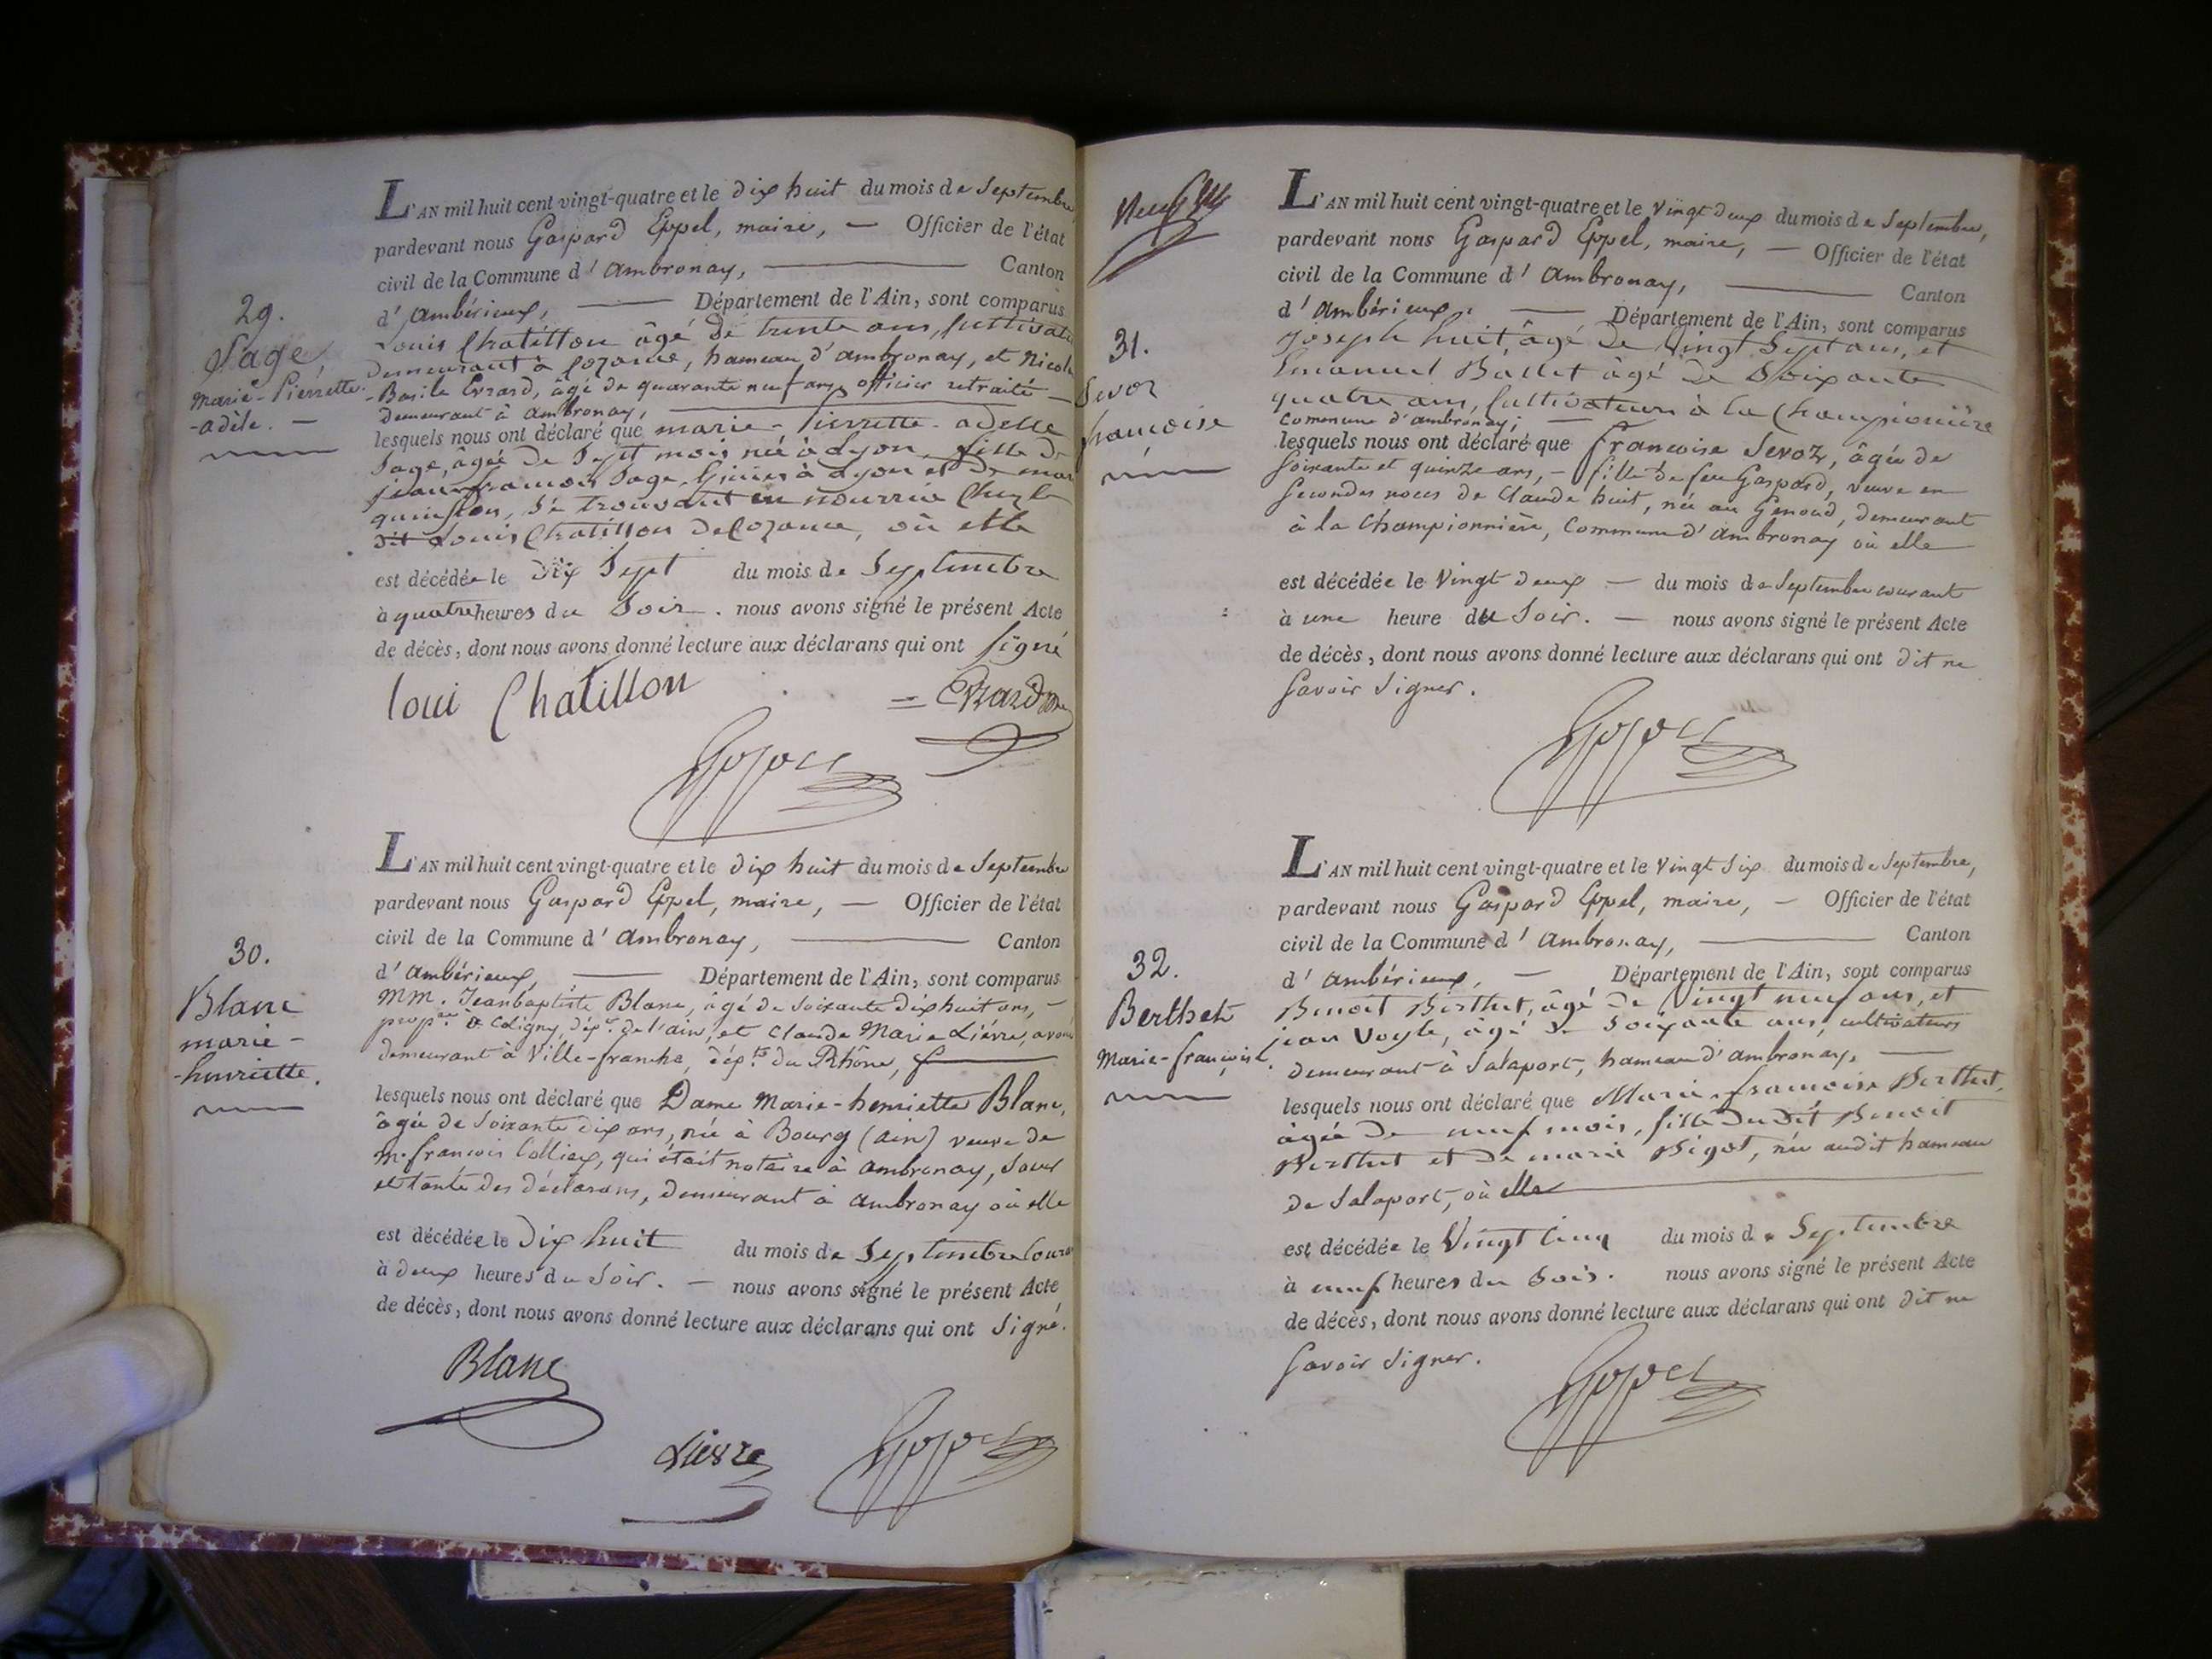 29.
Sage,
Marie-Pierrette
-adèle. —
L'AN mil huit cent vingt-quatre et le dix huit du mois de Septembre
pardevant nous Gaspard Eppel, maire, — Officier de l'état
civil de la Commune d'ambronay, — Canton
d'ambérieux, — Département de l'Ain, sont comparus
Louis Chatillon âgé de trente ans, Cultivateur
demeurant à Cozance, hameau d'ambronay, et Nicolas
-Basile Evrard, âgé de quarante neuf ans, officier retraité —
demeurant à ambronay, —
lesquels nous ont déclaré que marie-Pierrette-adelle
Sage, âgée de Sept mois née à Lyon, fille de
jean françois Sage, à Lyon et de
s'é trouvant en nourrice Chez le
dit Louis Chatillon de Cozance, où elle
est décédée le dix Sept du mois de Septembre
à quatre heures du Soir. nous avons signé le présent Acte
de décès, dont nous avons donné lecture aux déclarans qui ont signé
loui Chatillon = Evrard
Eppel
30.
Blanc
marie-
-henriette.
L'AN mil huit cent vingt-quatre et le dix huit du mois de Septembre
pardevant nous Gaspard Eppel, maire, — Officier de l'état
civil de la Commune d'ambronay, — Canton
d'ambérieux, — Département de l'Ain, sont comparus
MM. Jeanbaptiste Blanc, âgé de Soixante dix huit ans, —
propre à Coligny, dépt. de l'ain, et Claude Marie Lièvre, avoué
demeurant à Ville-franche, dépt. du Rhône, —
lesquels nous ont déclaré que Dame Marie-henriette Blanc,
âgée de Soixante dix ans, née à Bourg (ain) veuve de
M. françois Colliex, qui était notaire à ambronay, Soeur
et tante des déclarans, demeurant à ambronay où elle
est décédée le Dix huit du mois de Septembre Courant
à deux heures du Soir. — nous avons signé le présent Acte
de décès, dont nous avons donné lecture aux déclarans qui ont Signé.
Blanc
Lièvre Eppel
31.
Sevoz
françoise
L'AN mil huit cent vingt-quatre et le Vingt deux du mois de Septembre,
pardevant nous Gaspard Eppel, maire, — Officier de l'état
civil de la Commune d'ambronay, — Canton
d'ambérieux, — Département de l'Ain, sont comparus
Joseph huit, âgé de Vingt Sept ans, et
Emanuel Ballet âgé de Soixante
quatre ans, Cultivateurs à la Championière
Commune d'ambronay; —
lesquels nous ont déclaré que françoise Sevoz, âgée de
Soixante et quinze ans, — fille de feu Gaspard, veuve en
Secondes noces de Claude huit, née au Genoud, demeurant
à la Championnière, Commune d'ambronay où elle
est décédée le Vingt deux — du mois de Septembre courant
à une heure du Soir. — nous avons signé le présent Acte
de décès, dont nous avons donné lecture aux déclarans qui ont dit ne
Savoir Signer.
Eppel
32.
Berthet
Marie-françoise.
L'AN mil huit cent vingt-quatre et le Vingt Six du mois de Septembre,
pardevant nous Gaspard Eppel, maire, — Officier de l'état
civil de la Commune d'ambronay, — Canton
d'ambérieux, — Département de l'Ain, sont comparus
Benoit Berthet, âgé de Vingt neuf ans, et
jean Vogle, âgé de Soixante ans, cultivateurs
demeurant à Salaport, hameau d'ambronay, —
lesquels nous ont déclaré que Marie-francoise Berthet,
âgée de neuf mois, fille dudit Benoit
Berthet et de marie Bigot, née audit hameau
de Salaport, où elle —
est décédée le Vingt Cinq du mois de Septembre
à neuf heures du Soir. nous avons signé le présent Acte
de décès, dont nous avons donné lecture aux déclarans qui ont dit ne
Savoir Signer.
Eppel